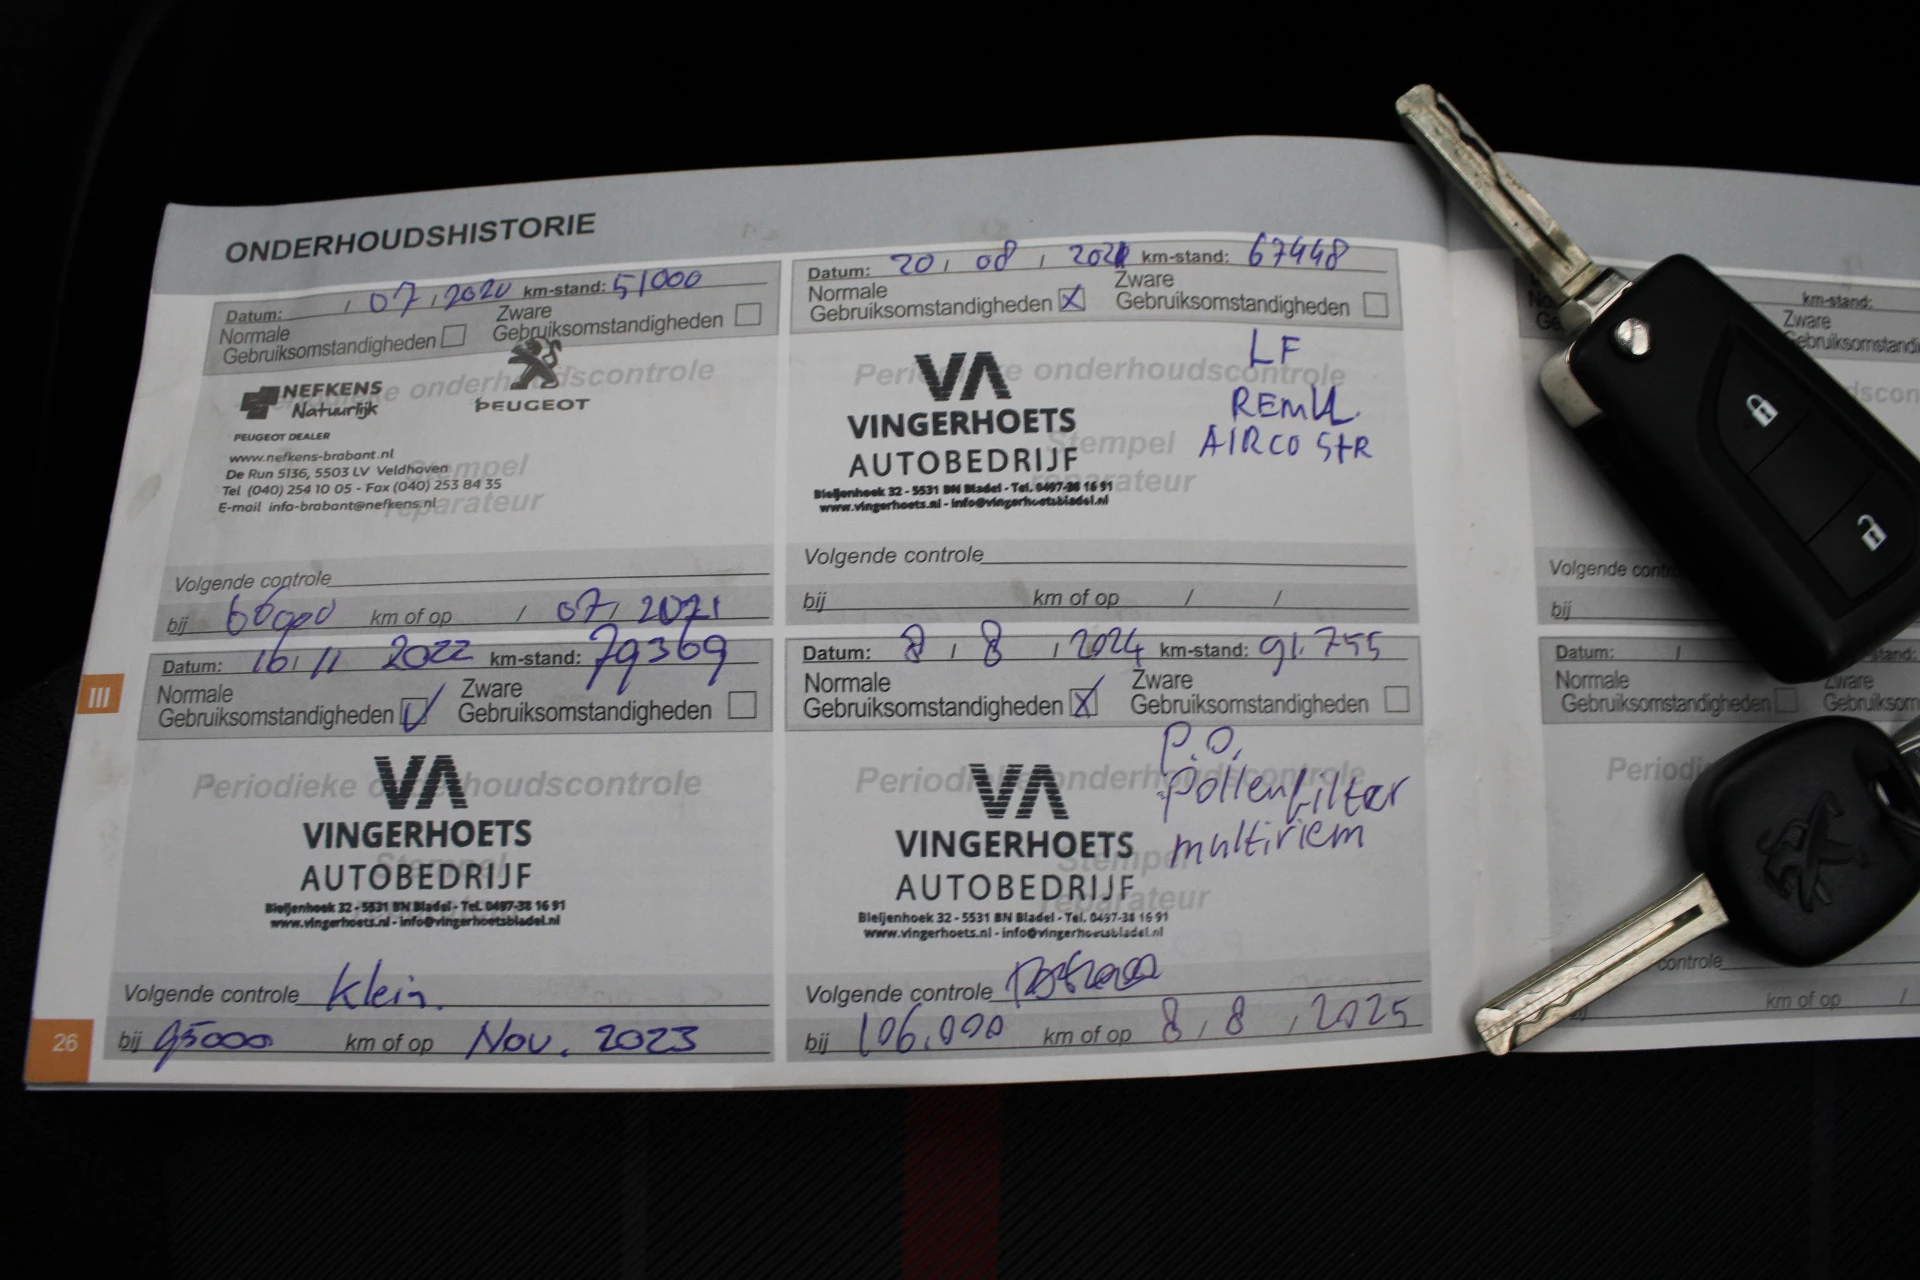 ONDERHOUDSHISTORIE
Datum: / 07 / 2020 km-stand: 51000
Normale
Gebruiksomstandigheden
Zware
Gebruiksomstandigheden
Periodieke onderhoudscontrole
NEFKENS
Natuurlijk
PEUGEOT
PEUGEOT DEALER
www.nefkens-brabant.nl
De Run 5136, 5503 LV Veldhoven
Tel (040) 254 10 05 - Fax (040) 253 84 35
E-mail info-brabant@nefkens.nl
Stempel
reparateur
Volgende controle
bij 66000 km of op / 07 / 2021
Datum: 20 / 08 / 2021 km-stand: 67448
Normale
Gebruiksomstandigheden X
Zware
Gebruiksomstandigheden
Periodieke onderhoudscontrole
LF
AIRCO STR
VA
VINGERHOETS
AUTOBEDRIJF
Bleijenhoek 32 - 5531 BN Bladel - Tel. 0497-38 16 91
www.vingerhoets.nl - info@vingerhoetsbladel.nl
Stempel
reparateur
Volgende controle
bij km of op / /
Datum: 16 / 11 2022 km-stand: 79369
Normale
Gebruiksomstandigheden
Zware
Gebruiksomstandigheden
Periodieke onderhoudscontrole
VA
VINGERHOETS
AUTOBEDRIJF
Bleijenhoek 32 - 5531 BN Bladel - Tel. 0497-38 16 91
www.vingerhoets.nl - info@vingerhoetsbladel.nl
Stempel
Volgende controle Klein.
bij 95000 km of op Nov. 2023
Datum: 8 / 8 / 2024 km-stand: 91.755
Normale
Gebruiksomstandigheden X
Zware
Gebruiksomstandigheden
Periodieke onderhoudscontrole
P.O.
pollenfilter
multiriem
VA
VINGERHOETS
AUTOBEDRIJF
Bleijenhoek 32 - 5531 BN Bladel - Tel. 0497-38 16 91
www.vingerhoets.nl - info@vingerhoetsbladel.nl
Stempel
reparateur
Volgende controle
bij 106.000 km of op 8 / 8 / 2025
III
26
km-stand:
Zware
Volgende
bij
Datum: /
Normale
Gebruiksomstandigheden
Zware
controle
km of op /